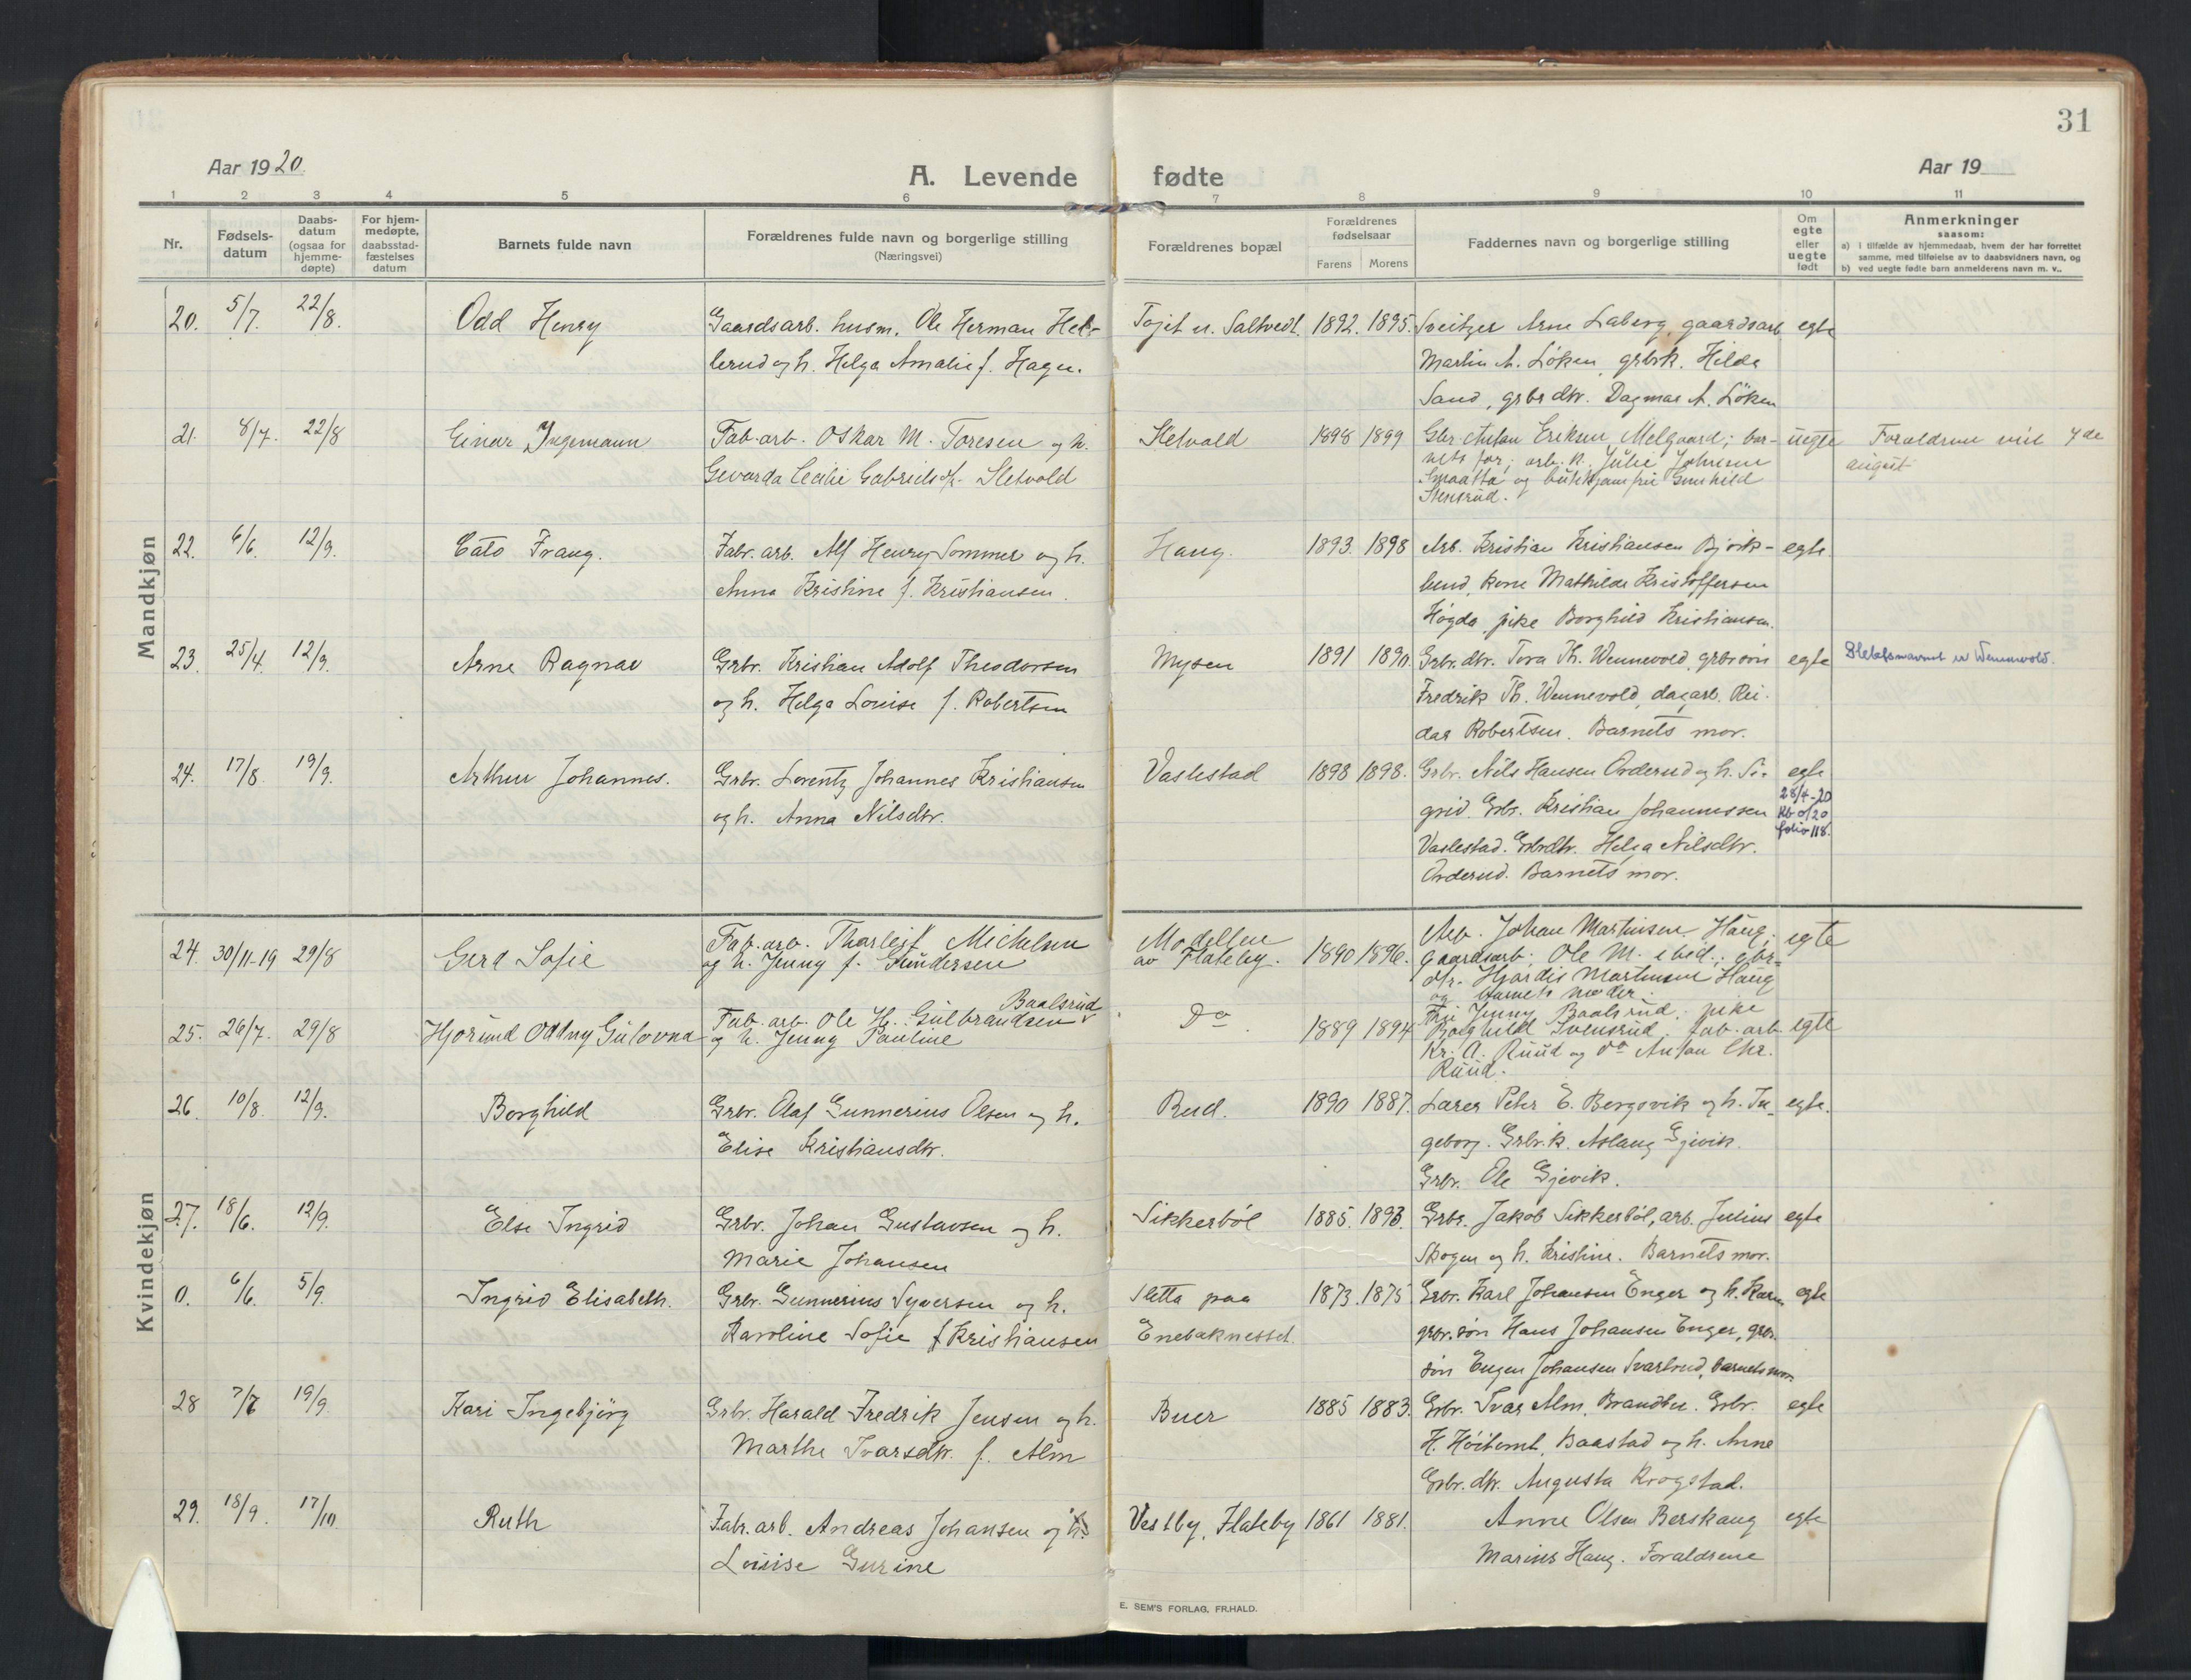 31
Aar 1920.
A. Levende fødte
Aar 19
1 2 3 4 5 6 7 8 9 10 11
Nr.
Fødsels-
datum
Daabs-
datum
(ogsaa for
hjemme-
døpte)
For hjem-
medøpte,
daabsstad-
fæstelses
datum
Barnets fulde navn
Forældrenes fulde navn og borgerlige stilling
(Næringsvei)
Forældrenes bopæl
Forældrenes
fødselsaar
Farens Morens
Faddernes navn og borgerlige stilling
Om
egte
eller
uegte
født
Anmerkninger
saasom:
a) i tilfælde av hjemmedaab, hvem der har forrettet
samme, med tilføielse av to daabsvidners navn, og
b) ved uegte fødte barn anmelderens navn m. v..
Mandkjøn
20. 5/7. 22/8. Odd Henry
Gaardsarb. husm. Ole Herman Hel-
lerud og h. Helga Amalie f. Hagen.
Tojet u. Saltvedt. 1892. 1895.
Sveitzer Arne Laberg, gaardsarb.
Martin A. Løken, grbrk. Hilda
Sand, grbrdtr. Dagmar A. Löken
egte
21. 8/7. 22/8 Einar Ingemann
Fab. arb. Oskar M. Toresen og h.
Gevarda Cecilie Gabrielsdtr. Sletvold
Sletvold 1898 1899
Gbr. Anton Eriksen Melgaard; bar-
nets far; arb. k. Julie Johnsen
Smaatta og butikjomfru Gunhild
Stensrud.
uegte
Forældrene viet 7de
august
22. 6/6. 12/9. Cato Frang.
Fabr. arb. Alf Henry Sommer og h.
Anna Kristine f. Kristiansen.
Haug. 1893. 1898
Arb. Kristian Kristiansen Bjørk-
lund, kone Mathilde Kristoffersen
Høgda, pike Borghild Kristiansen.
egte
23. 25/4. 12/9. Arne Ragnar
Grbr. Kristian Adolf Theodorsen
og h. Helga Louise f. Robertsen
Mysen 1891 1890.
Grbr. dtr. Tora Th. Wennevold, grbrsøn
Fredrik Th. Wennevold, dagarb. Rei-
dar Robertsen. Barnets mor.
egte
Slektsnavnet er Wennevold.
24. 17/8. 19/9. Arthur Johannes.
Grbr. Lorentz Johannes Kristiansen
og h. Anna Nilsdtr.
Vaslestad 1898 1898.
Grbr. Nils Hansen Orderud og h. Si-
grid. Grbr. Kristian Johannessen
Vaslestad. Grbrdtr. Helga Nilsdtr.
Orderud. Barnets mor.
egte
28/4-20
Kb o/20
folio 118.
Kvindekjøn
24. 30/11-19 29/8 Gerd Sofie
Fab. arb. Tharleif Michelsen
og h. Jenny f. Gundersen
Modellen
av Flateby. 1890 1896.
Arb. Johan Martinsen Haug;
gaardsarb; Ole M. ibid.; gbr-
dtr. Hjørdis Martinsen Haug
og barnets moder.
egte
25. 26/7. 29/8 Hjørund Oddny Gulovna
Fab. arb. Ole H. Gulbrandsen Baalsrud
og h. Jenny Pauline
Do 1889 1894
Frøi Jenny Baalsrud; pike
Borghild Svensrud, fab. arb.
Kr. A. Ruud og do Anton Chr.
Ruud.
egte
26. 10/8. 12/9. Borghild
Grbr. Olaf Gunnerius Olsen og h.
Elise Kristiansdtr.
Rud. 1890 1887.
Lærer Peter E. Bergsvik og h. In-
geborg. Grbr.k. Aslaug Gjevik.
Grbr. Ole Gjevik.
egte.
27. 18/6. 12/9. Else Ingrid
Grbr. Johan Gustavsen og h.
Marie Johansen
Sikkerböl 1885. 1893.
Grbr. Jakob Sikkerböl, arb. Julius
Skogen og h. Kristine. Barnets mor.
egte
0. 6/6. 5/9. Ingrid Elisabeth.
Grbr. Gunnerius Syversen og h.
Karoline Sofie f Kristiansen
Sletta paa
Enebaknesset. 1873. 1875
Grbr. Karl Johansen Enger og h. Karen
grbr. søn Hans Johansen Enger, grbr.
søn Eugen Johansen Svartrud, barnets mor.
egte
28 7/7 19/9. Kari Ingebjörg
Grbr. Harald Fredrik Jensen og h.
Marthe Ivarsdtr. f. Alm
Buer 1885 1883.
Grbr. Ivar Alm, Brandbu. Grbr.
H. Höitomt, Baastad og h. Anne
Grbr. dtr. Augusta Krogstad.
egte
29. 18/9. 17/10. Ruth
Fabr. arb. Andreas Johansen og h.
Louise Gurine
Vestby, Flateby 1861 1881.
Anne Olsen Berskaug
Marius Haug. Forældrene
egte
E. SEM'S FORLAG, FR.HALD.